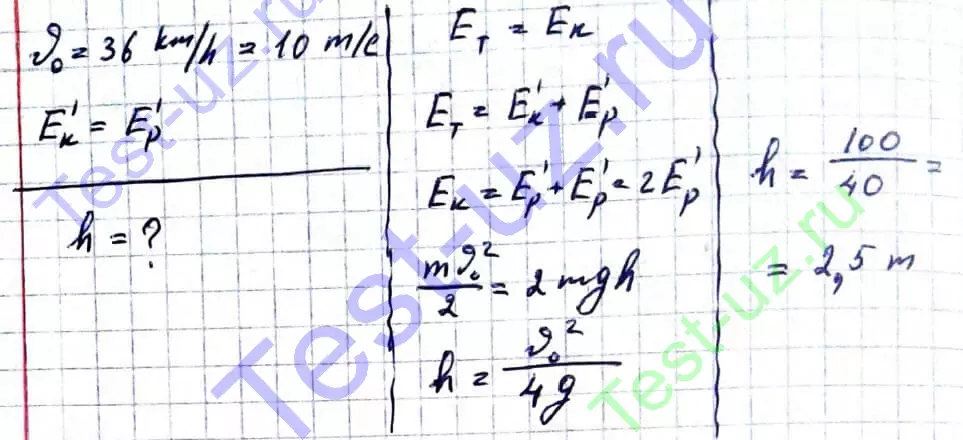 ϑ₀ = 36 km/h = 10 m/c
Eₖ' = Eₚ'
h = ?
Eₜ = Eₖ
Eₜ = Eₖ' + Eₚ'
Eₖ = Eₚ' + Eₚ' = 2Eₚ'
mϑ₀²/2 = 2mgh
h = ϑ₀²/4g
h = 100/40 =
= 2,5 m
Test-uz.ru
Test-uz.ru
Test-uz.ru